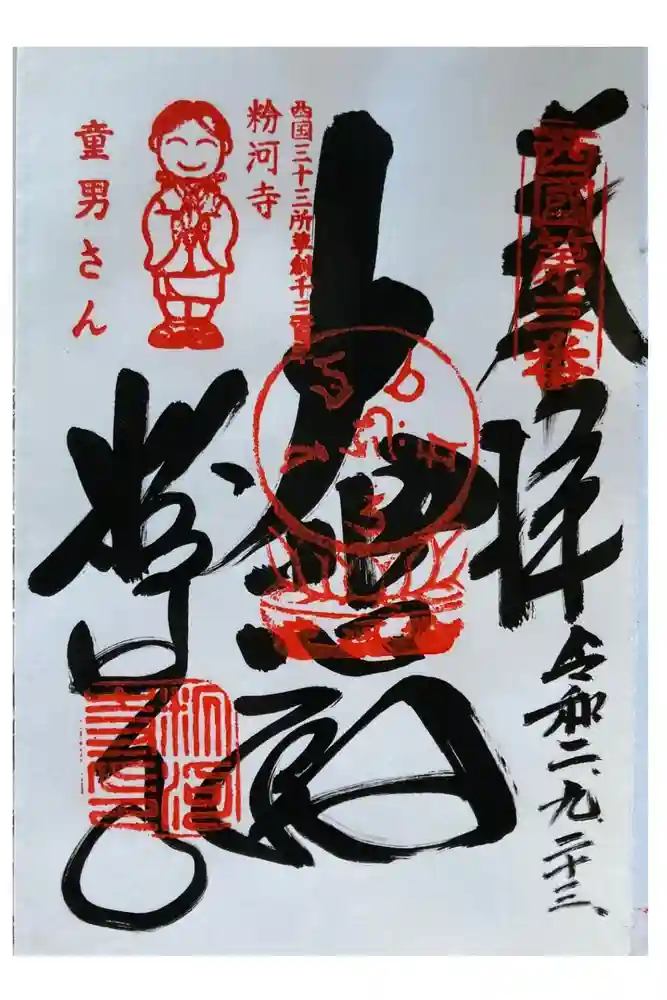 奉拝
西國第三番
令和二、九、二十三、
大悲殿
西国三十三所草創千三百年
粉河寺
童男さん
粉河寺
粉河